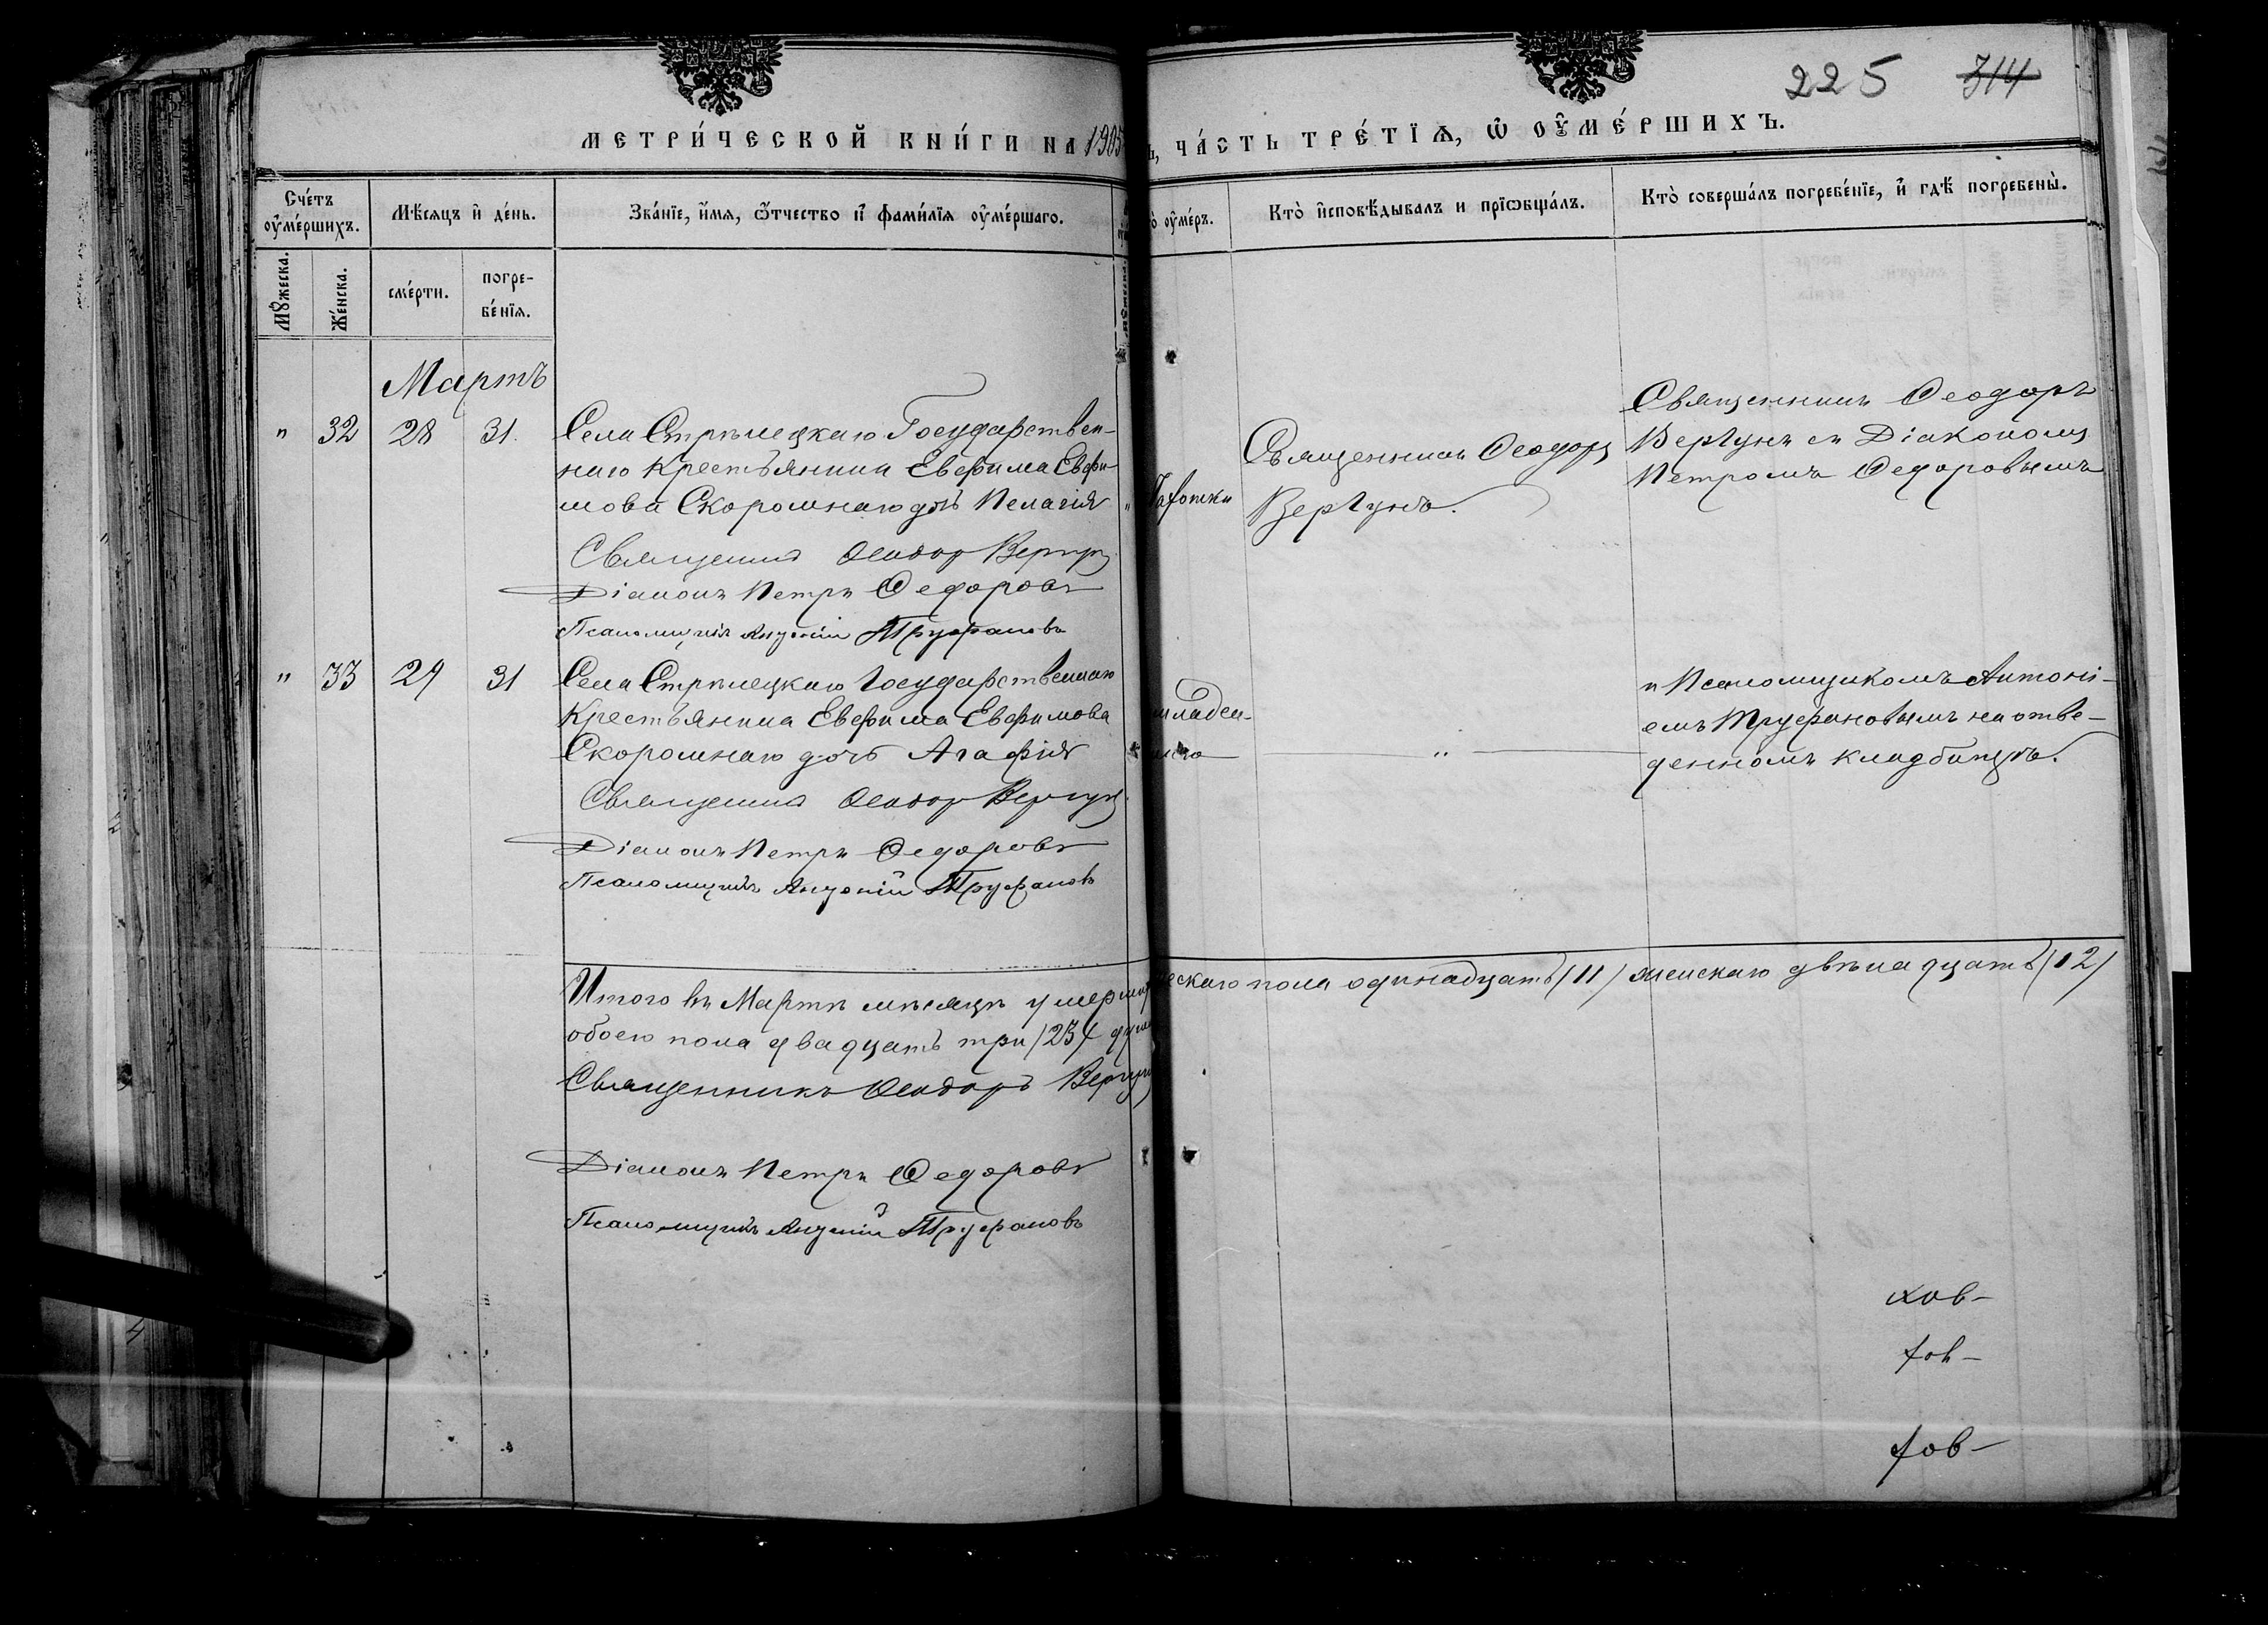 225 314
МЕТРИ́ЧЕСКОЙ КНИ́ГИ НА 1905
ъ, ЧА́СТЬ ТРЕ́ТЇѦ, Ѿ ОУ҆МЕ́РШИХЪ.
Сче́тъ оу҆ме́ршихъ.
Мѣ́сяцъ и҆ де́нь.
Зва́нїе, и҆́мя, ѻ҆́тчество и҆ фами́лїя оу҆ме́ршаго.
о̀ оу҆ме́ръ.
Кто̀ и҆сповѣ́дывалъ и прїѻбща́лъ.
Кто̀ соверша́лъ погребе́нїе, и҆ гдѣ̀ погребены̀.
Мꙋ́жеска.
Же́нска.
сме́рти.
погре-
бе́нїя.
Мартъ
" 32 28 31.
Села Стрѣлецкаго Государствен-
наго Крестьянина Евфима Евфи-
мова Скоромнаго дочь Пелагія
Священникъ Ѳеодоръ Вергунъ
Діаконъ Петръ Ѳедоровъ
Псаломщикъ Антоній Труфановъ
"
Священникъ Ѳеодоръ
Вергунъ.
Священникъ Ѳеодоръ
Вергунъ съ Діакономъ
Петромъ Ѳедоровымъ
" 33 29 31
Села Стрѣлецкаго Государственнаго
Крестьянина Евфима Евфимова
Скоромнаго дочь Агафія
Священникъ Ѳеодоръ Вергунъ
Діаконъ Петръ Ѳедоровъ
Псаломщикъ Антоній Труфановъ
младен-
"
и Псаломщикомъ Антоні-
емъ Труфановымъ на отве-
денномъ кладбищѣ.
Итого въ Мартѣ мѣсяцѣ умерло ескаго пола одинадцать /11/ женскаго двѣнадцать /12/
обоего пола двадцать три /23/ душ
Священникъ Ѳеодоръ Вергунъ
Діаконъ Петръ Ѳедоровъ
Псаломщикъ Антоній Труфановъ